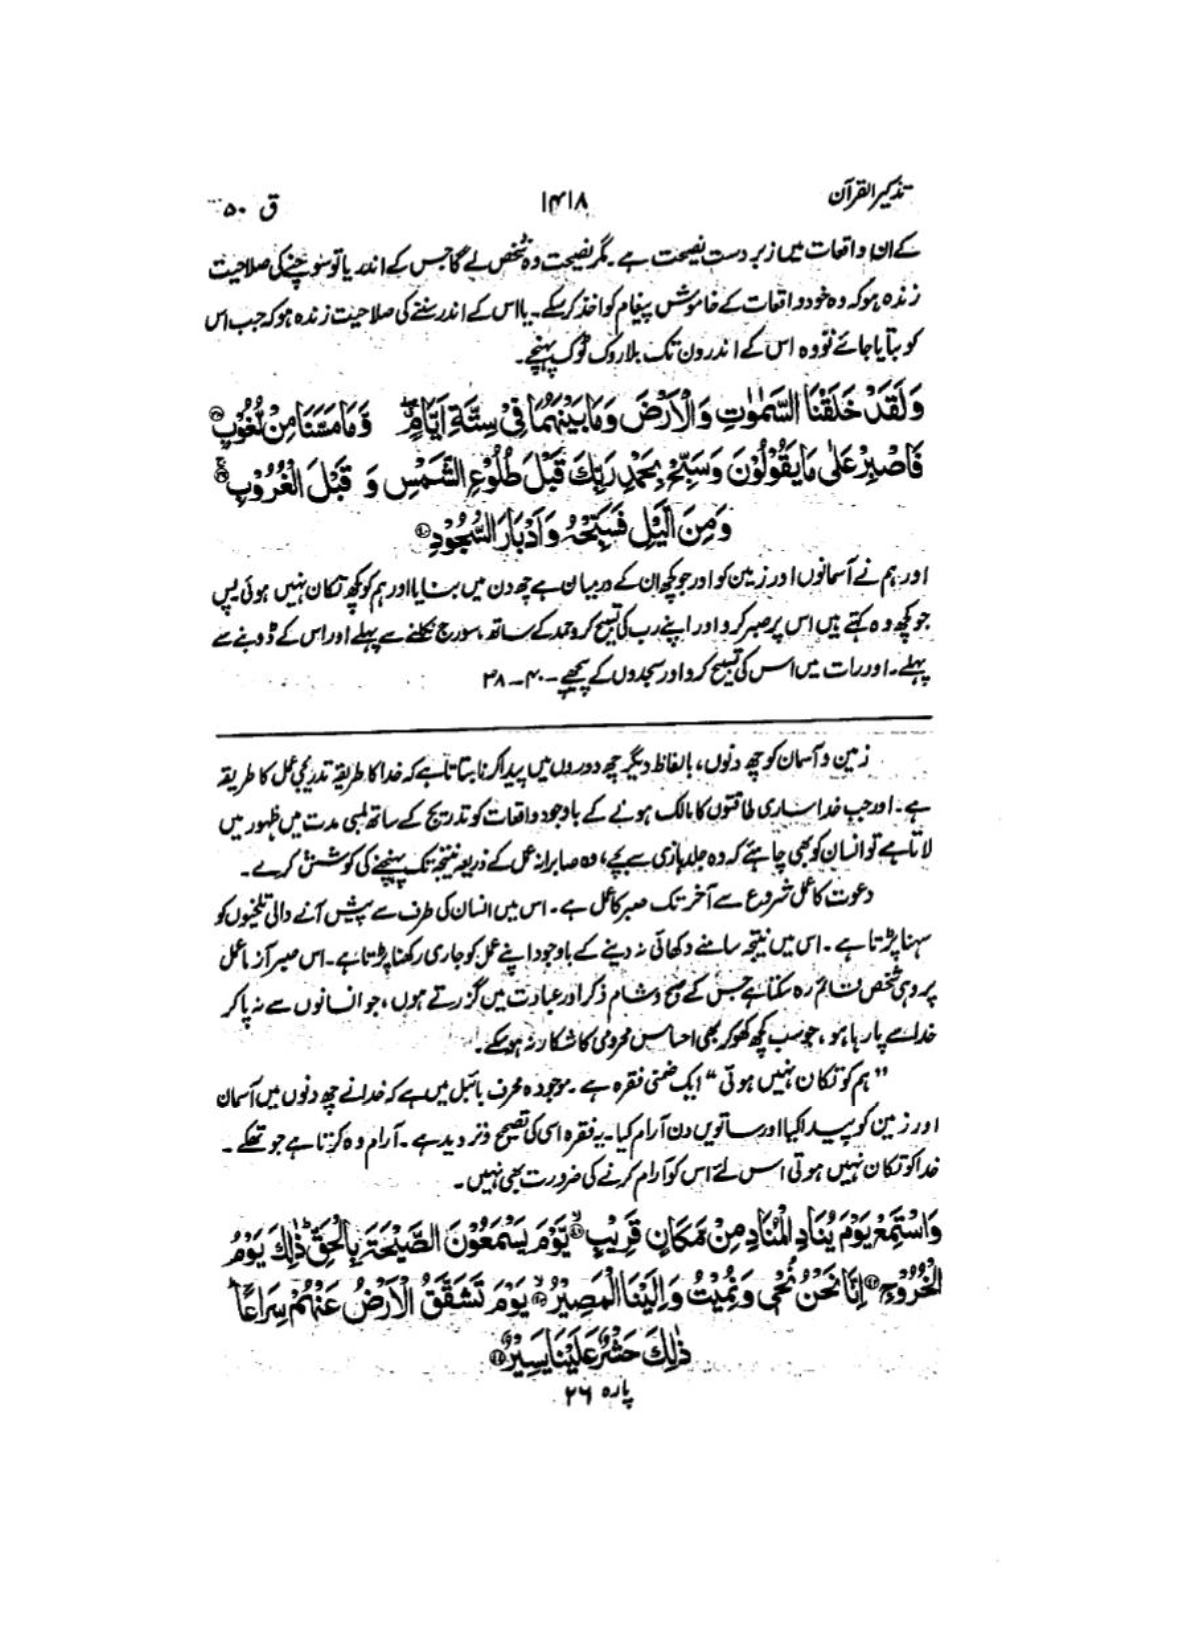 تذکیر القرآن ۱۴۱۸ ق ۵۰
کے ان واقعات میں زبردست نصیحت ہے۔ مگر نصیحت وہ شخص لے گا جس کے اندر یا تو سوچنے کی صلاحیت
زندہ ہو کہ وہ خود واقعات کے خاموش پیغام کو اخذ کر سکے۔ یا اس کے اندر سننے کی صلاحیت زندہ ہو کہ جب اس
کو بتایا جائے تو وہ اس کے اندرون تک بلا روک ٹوک پہنچے۔
وَلَقَدْ خَلَقْنَا السَّمٰوٰتِ وَالْاَرْضَ وَمَا بَيْنَهُمَا فِيْ سِتَّةِ اَيَّامٍ ۖ وَّمَا مَسَّنَا مِنْ لُّغُوْبٍ ۳۸
فَاصْبِرْ عَلٰى مَا يَقُوْلُوْنَ وَسَبِّحْ بِحَمْدِ رَبِّكَ قَبْلَ طُلُوْعِ الشَّمْسِ وَ قَبْلَ الْغُرُوْبِ ۳۹
وَمِنَ الَّيْلِ فَسَبِّحْهُ وَاَدْبَارَ السُّجُوْدِ ۴۰
اور ہم نے آسمانوں اور زمین کو اور جو کچھ ان کے درمیان ہے چھ دن میں بنایا اور ہم کو کچھ تکان نہیں ہوئی پس
جو کچھ وہ کہتے ہیں اس پر صبر کرو اور اپنے رب کی تسبیح کرو حمد کے ساتھ، سورج نکلنے سے پہلے اور اس کے ڈوبنے سے
پہلے۔ اور رات میں اس کی تسبیح کرو اور سجدوں کے پیچھے ۔ ۴۰۔ ۳۸
زمین و آسمان کو چھ دنوں، بالفاظ دیگر چھ دوروں میں پیدا کرنا بتاتا ہے کہ خدا کا طریقہ تدریجی عمل کا طریقہ
ہے۔ اور جب خدا ساری طاقتوں کا مالک ہونے کے باوجود واقعات کو تدریج کے ساتھ لمبی مدت میں ظہور میں
لاتا ہے تو انسان کو بھی چاہئے کہ وہ جلد بازی سے بچے، وہ صابرانہ عمل کے ذریعہ نتیجہ تک پہنچنے کی کوشش کرے۔
دعوت کا عمل شروع سے آخر تک صبر کا عمل ہے۔ اس میں انسان کی طرف سے پیش آنے والی تلخیوں کو
سہنا پڑتا ہے۔ اس میں نتیجہ سامنے دکھائی نہ دینے کے باوجود اپنے عمل کو جاری رکھنا پڑتا ہے۔ اس صبر آزما عمل
پر وہی شخص قائم رہ سکتا ہے جس کے صبح و شام ذکر اور عبادت میں گزرتے ہوں، جو انسانوں سے نہ پا کر
خدا سے پا رہا ہو، جو سب کچھ کھو کر بھی احساس محرومی کا شکار نہ ہو سکے۔
”ہم کو تکان نہیں ہوئی“ ایک ضمنی فقرہ ہے۔ موجودہ محرف بائبل میں ہے کہ خدا نے چھ دنوں میں آسمان
اور زمین کو پیدا کیا اور ساتویں دن آرام کیا۔ یہ فقرہ اسی کی تصحیح و تردید ہے۔ آرام وہ کرتا ہے جو تھکے۔
خدا کو تکان نہیں ہوتی اس لئے اس کو آرام کرنے کی ضرورت بھی نہیں۔
وَاسْتَمِعْ يَوْمَ يُنَادِ الْمُنَادِ مِنْ مَّكَانٍ قَرِيْبٍ ۴۱ يَّوْمَ يَسْمَعُوْنَ الصَّيْحَةَ بِالْحَقِّ ؕ ذٰلِكَ يَوْمُ
الْخُرُوْجِ ۴۲ اِنَّا نَحْنُ نُحْيٖ وَنُمِيْتُ وَاِلَيْنَا الْمَصِيْرُ ۴۳ يَوْمَ تَشَقَّقُ الْاَرْضُ عَنْهُمْ سِرَاعًا ؕ
ذٰلِكَ حَشْرٌ عَلَيْنَا يَسِيْرٌ ۴۴
پارہ ۲۶